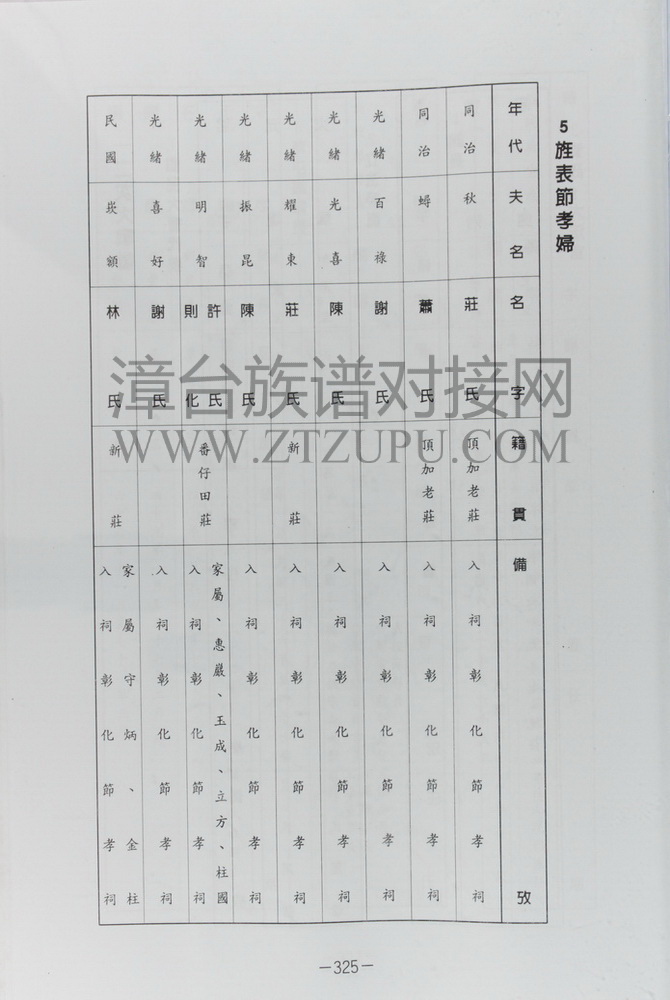 5 旌表節孝婦
年代 夫名 名字 籍貫 備攷
同治 秋 莊氏 頂加老莊 入祠彰化節孝祠
同治 蟳 蕭氏 頂加老莊 入祠彰化節孝祠
光緒 百祿 謝氏 入祠彰化節孝祠
光緒 光喜 陳氏 入祠彰化節孝祠
光緒 耀東 莊氏 新莊 入祠彰化節孝祠
光緒 振昆 陳氏 入祠彰化節孝祠
光緒 明智 許氏 則化 番仔田莊 家屬、惠嚴、玉成、立方、柱國 入祠彰化節孝祠
光緒 喜好 謝氏 入祠彰化節孝祠
民國 崁額 林氏 新莊 家屬守炳、金柱 入祠彰化節孝祠
漳台族谱对接网
WWW.ZTZUPU.COM
－325－